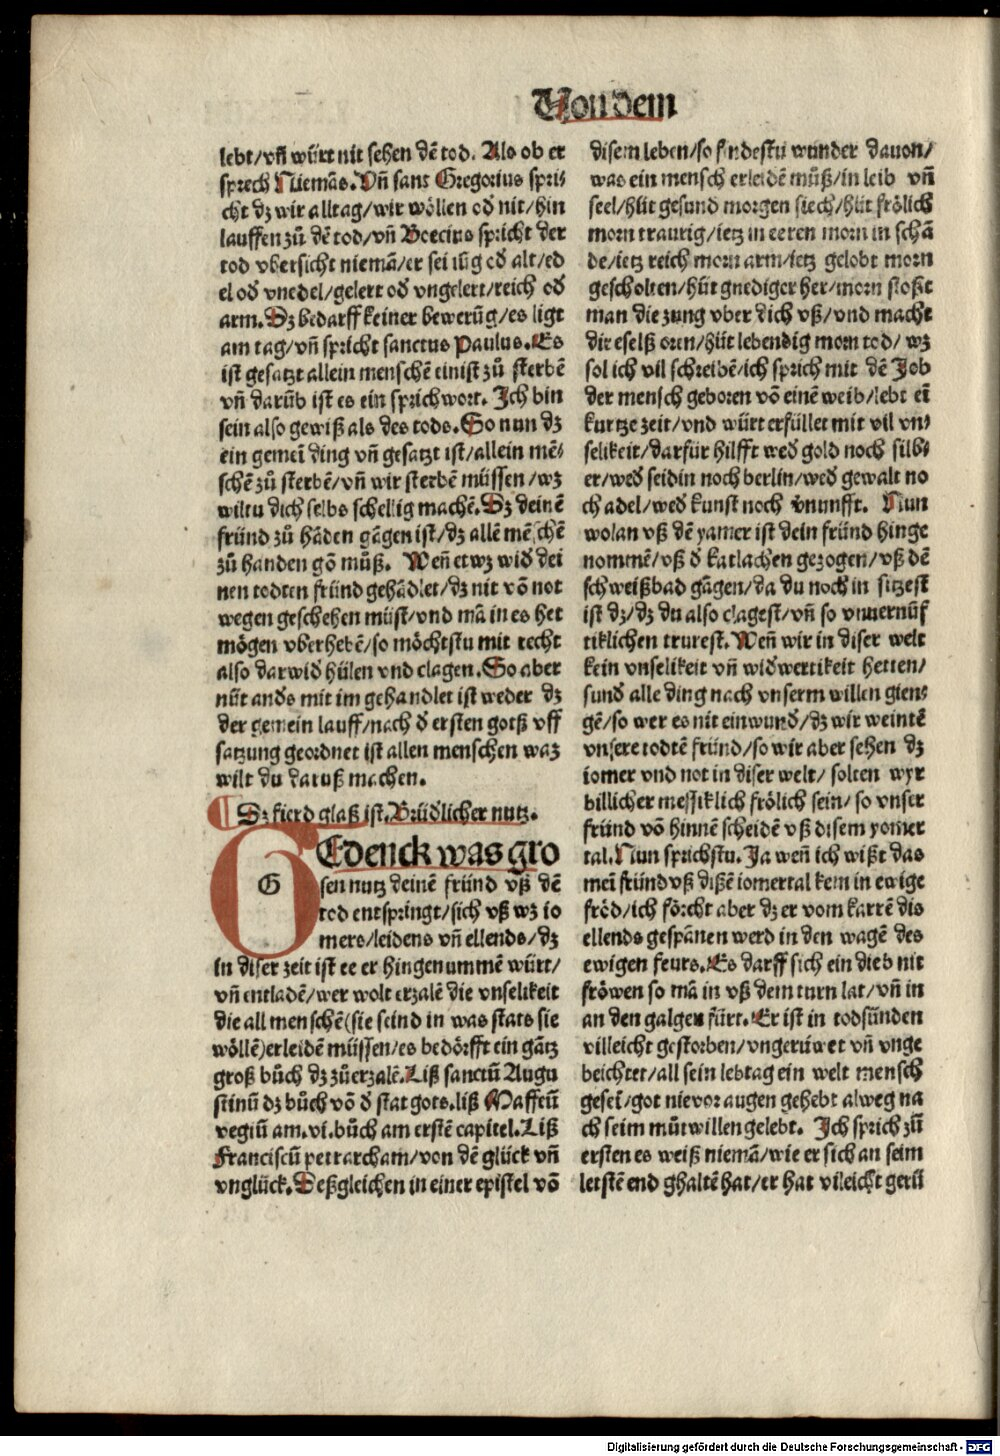 Von dem
lebt/vñ würt nit sehen dē tod. Als ob er
sprech Niemās. Vñ sant Gregorius spri⸗
cht dz wir alltag/wir wöllen oď nit/hin
lauffen zů dē tod/vñ Boecius spricht der
tod vbersicht niemā/er sei iūg oď alt/ed
el oď vnedel/gelert oď vngelert/reich oď
arm. Dz bedarff keiner bewerūg/es ligt
am tag/vñ spricht sanctus Paulus. Es
ist gesatzt allein menschē einist zů sterbē
vñ darūb ist es ein sprichwort. Ich bin
sein also gewiß als des tods. So nun dz
ein gemeī ding vñ gesatzt ist/allein mē⸗
schē zů sterbē/vñ wir sterbē müssen/wz
wiltu dich selbs schellig machē. Dz deinē
fründ zů hāden gāgen ist/dz allē mēschē
zů handen gō můß. Weñ etwz wiď dei
nen todten fründ gehādlet/dz nit vō not
wegen geschehen müst/vnd mā in es het
mögen vberhebē/so möchstu mit recht
also darwiď hülen vnd clagen. So aber
nüt anďs mit im gehandlet ist weder dz
der gemein lauff/nach ď ersten gotß vff
satzung geordnet ist allen menschen waz
wilt du daruß machen.
¶ Dz fierd glaß ist. Brüdlicher nutz.
GEdenck was gro
G
sen nutz deinē fründ vß dē
tod entspringt/sich vß wz io
mers/leidens vñ ellends/dz
in diser zeit ist ee er hingenummē würt/
vñ entladē/wer wolt erzalē die vnselikeit
die all menschē(sie seind in was stats sie
wöllē)erleidē müssen/es bedörfft ein gātz
groß bůch dz zů erzalē. Liß sanctū Augu
stinū dz bůch vō ď stat gots. liß Maffeū
vegiū am. vi. bůch am erstē capitel. Liß
Franciscū petrarcham/von dē glück vñ
vnglück. Deßgleichen in einer epistel vō
disem leben/so findestu wunder dauon/
was ein mensch erleidē můß/in leib vñ
seel/hüt gesund morgen siech/hüt frölich
morn traurig/ietz in eeren morn in schā
de/ietz reich morn arm/ietz gelobt morn
gescholten/hüt gnediger her/morn stoßt
man die zung vber dich vß/vnd macht
dir eselß oren/hüt lebendig morn tod/ wz
sol ich vil schreibē/ich sprich mit dē Job
der mensch geboren vō einē weib/lebt eī
kurtze zeit/vnd würt erfüllet mit vil vn⸗
selikeit/darfür hilfft weď gold noch silb⸗
er/weď seidin noch berlin/weď gewalt no
ch adel/weď kunst noch v̄nunfft. Nun
wolan vß dē yamer ist dein fründ hinge
nommē/vß ď katlachen gezogen/vß dē
schweißbad gāgen/da du noch in sitzest
ist dz/dz du also clagest/vñ so vnuernüf
tiklichen trurest. Weñ wir in diser welt
kein vnselikeit vñ widwertikeit hetten/
sunď alle ding nach vnserm willen gien⸗
gē/so wer es nit ein wunď/dz wir weintē
vnsere todtē fründ/so wir aber sehen dz
iomer vnd not in diser welt/ solten wyr
billicher messiklich frölich sein/ so vnser
fründ vō hinnē scheidē vß disem yomer
tal. Nun sprichstu. Ja weñ ich wißt das
meī fründ vß dißē iomertal kem in ewige
fröd/ich förcht aber dz er vom karrē dis
ellends gespānen werd in den wagē des
ewigen feurs. Es darff sich ein dieb nit
fröwen so mā in vß dem turn lat/vñ in
an den galgen fürt. Er ist in todsünden
villeicht gestorben/vngerüwet vñ vnge
beichtet/all sein lebtag ein welt mensch
geseī/got nie vor augen gehebt alweg na
ch seim můtwillen gelebt. Ich sprich zů
ersten es weiß niemā/wie er sich an seim
letstē end ghaltē hat/er hat vileicht gerü
Digitalisierung gefördert durch die Deutsche Forschungsgemeinschaft - DFG